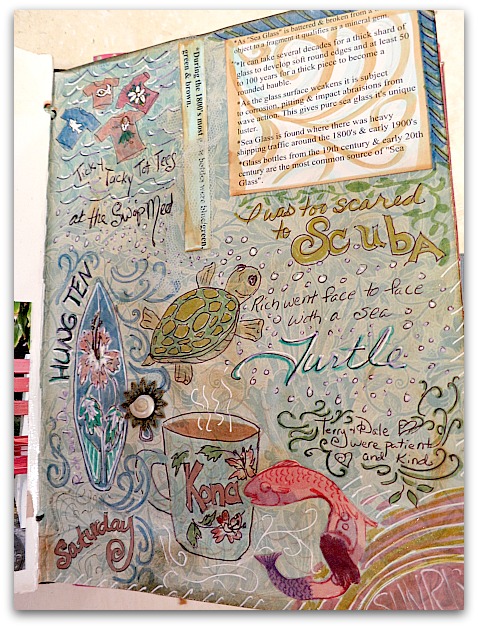 *As "Sea Glass" is battered & broken from a
object to a fragment it qualifies as a mineral gem.
*It can take several decades for a thick shard of
glass to develop soft round edges and at least 50
to 100 years for a thick piece to become a
rounded bauble.
*As the glass surface weakens it is subject
to corrosion, pitting & impact abraisions from
wave action. This gives pure sea glass it's unique
luster.
*Sea Glass is found where there was heavy
shipping traffic around the 1800's & early 1900's
*Glass bottles from the 19th century & early 20th
century are the most common source of "Sea
Glass".
*During the 1800's most
bottles were blue/green,
green & brown.
Tacky Tot Tees
at the Swap Meet
I was too scared
to Scuba
HUNG TEN
Rich went face to face
with a Sea
Turtle
Terry & Dale
were patient
and Kind
Kona
Saturday